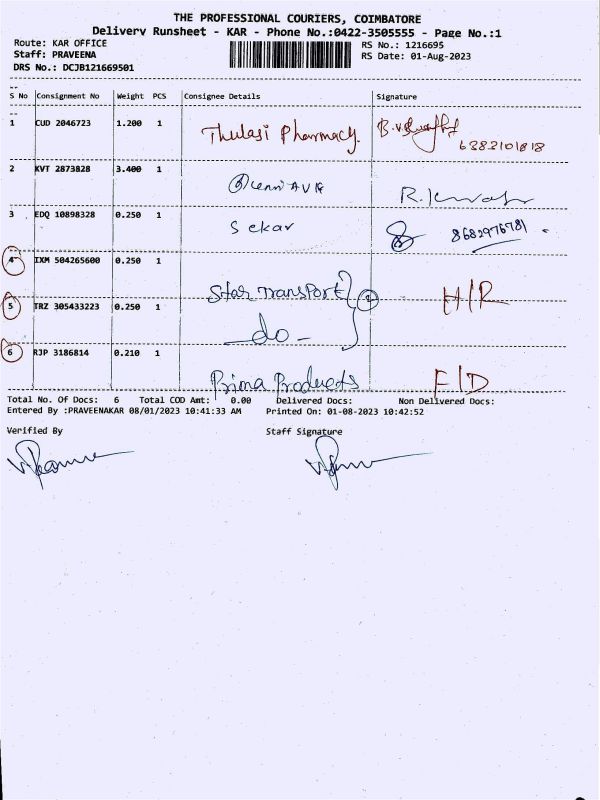 THE PROFESSIONAL COURIERS, COIMBATORE
Delivery Runsheet - KAR - Phone No.:0422-3505555 - Page No.:1
Route: KAR OFFICE RS No.: 1216695
Staff: PRAVEENA RS Date: 01-Aug-2023
DRS No.: DCJB121669501
S No Consignment No Weight PCS Consignee Details Signature
1 CUD 2046723 1.200 1 Thulasi Pharmacy.
2 KVT 2873828 3.400 1
3 EDQ 10898328 0.250 1 Sekar 8682976781
4 IXM 504265600 0.250 1 Star Transport H/R
5 TRZ 305433223 0.250 1 -do-
6 RJP 3186814 0.210 1 Prima Products F/D
Total No. Of Docs: 6 Total COD Amt: 0.00 Delivered Docs: Non Delivered Docs:
Entered By :PRAVEENAKAR 08/01/2023 10:41:33 AM Printed On: 01-08-2023 10:42:52
Verified By Staff Signature